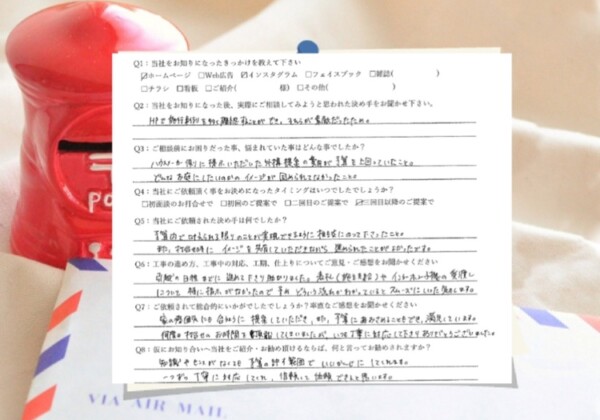 Q1：当社をお知りになったきっかけを教えて下さい
☑ホームページ □Web広告 ☑インスタグラム □フェイスブック □雑誌( )
□チラシ □看板 □ご紹介( 様) □その他( )
Q2：当社をお知りになった後、実際にご相談してみようと思われた決め手をお聞かせ下さい。
HPで施行事例を多く確認することができ、それらが素敵だったため。
Q3：ご相談前にお困りだった事、悩まれていた事はどんな事でしたか？
ハウスメーカー様に提示いただいた外構提案の費用が予算を上回っていたこと。
どんなお庭にしたいかのイメージが固められてなかったこと。
Q4：当社にご依頼頂く事をお決めになったタイミングはいつでしたでしょうか？
□初面談のお打合せで □初回のご提案で □二回目のご提案で ☑三回目以降のご提案で
Q5：当社にご依頼された決め手は何でしたか？
予算内で 考えられる限りのことが実現できるように 相談にのって下さったこと。
また、打合せ時に イメージを共有していただきながら 進められたことがよかったです。
Q6：工事の進め方、工事中の対応、工期、仕上りについてご意見・ご感想をお聞かせください
希望の日程までに 進めて下さり助かりました。
について 特に 指示がなかったので
Q7：ご依頼されて総合的にいかがでしたでしょうか？率直なご感想をお聞かせください
家の雰囲気に 合うように 提案していただき、また、予算に
何度も 打合せの お時間を 頂戴してしまいましたが、いつも丁寧に対応して下さりありがとうございました。
Q8：仮にお知り合いへ当社をご紹介・お勧め頂けるならば、何と言ってお勧めされますか？
知識やセンスがなくても 予算の許す範囲で いいかんじに してくれます。
一つずつ 丁寧に 対応してくれ、信頼して 依頼できると思います。
VIA AIR MAIL